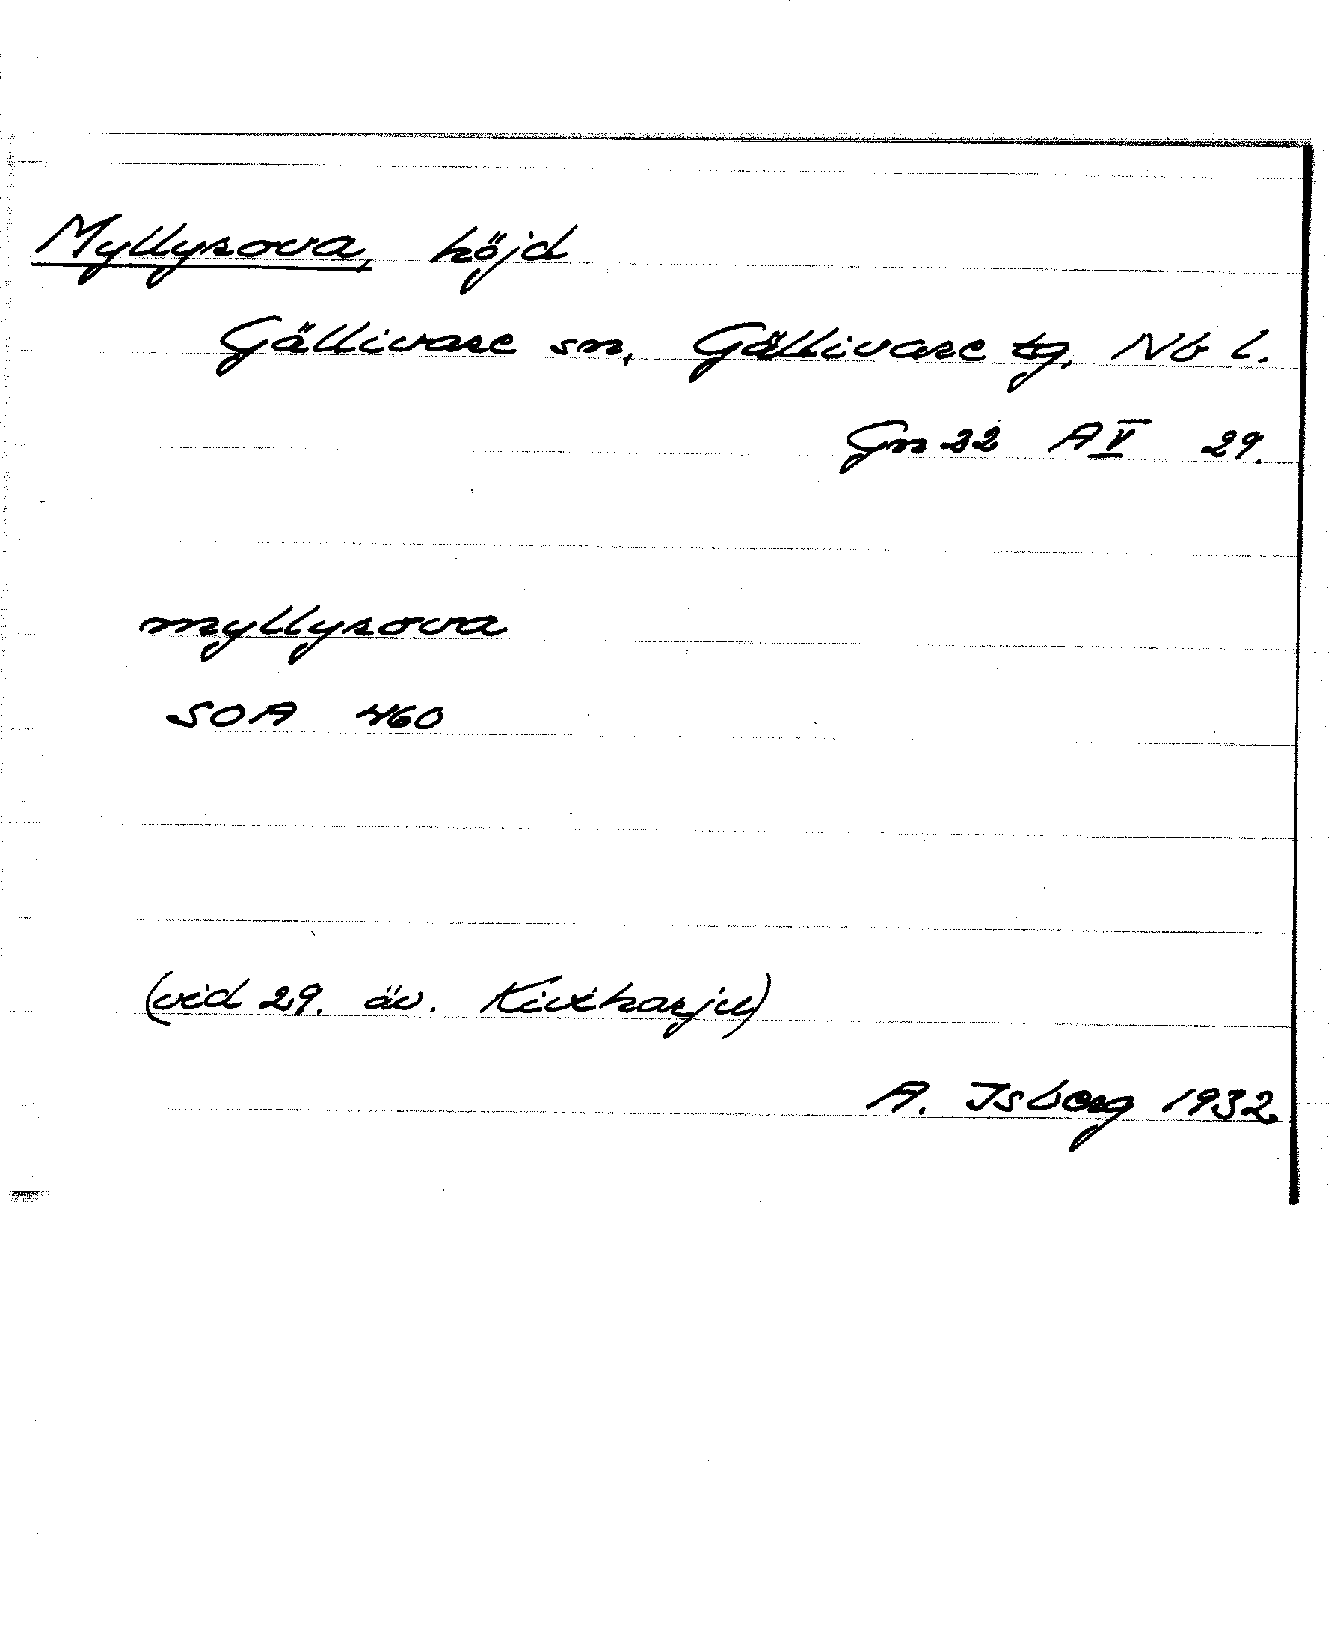 Myllysova, höjd
Gällivare sn, Gällivare tg, Nb l.
Gn 22 A V 29.
myllysova
SOA 460
(vid 29. äv. Kiviharju)
A. Isberg 1932